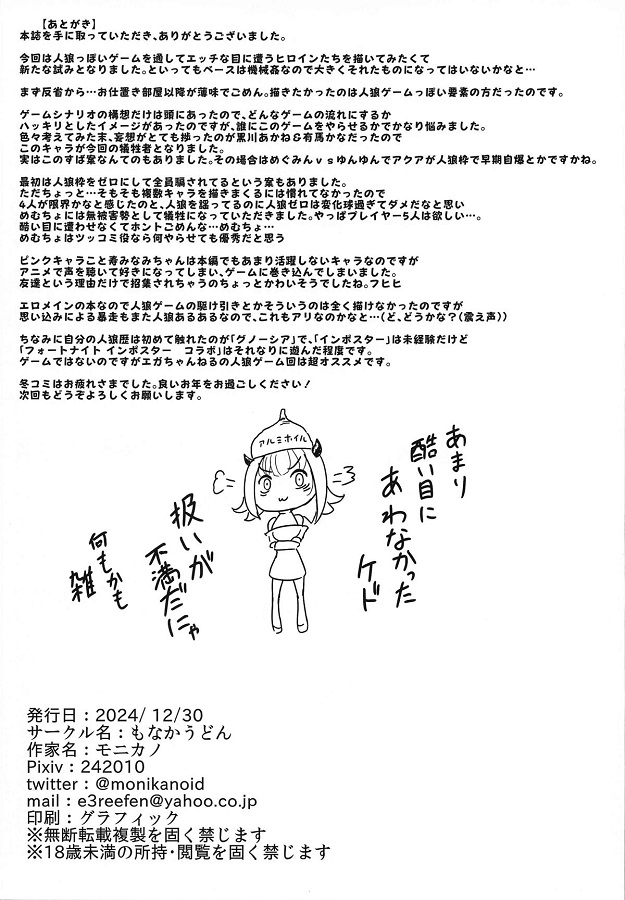 【あとがき】
本誌を手に取っていただき、ありがとうございました。
今回は人狼っぽいゲームを通してエッチな目に遭うヒロインたちを描いてみたくて
新たな試みとなりました。といってもベースは機械姦なので大きくそれたものになってはいないかなと…
まず反省から…お仕置き部屋以降が薄味でごめん。描きたかったのは人狼ゲームっぽい要素の方だったのです。
ゲームシナリオの構想だけは頭にあったので、どんなゲームの流れにするか
ハッキリとしたイメージがあったのですが、誰にこのゲームをやらせるかでかなり悩みました。
色々考えてみた末、妄想がとても捗ったのが黒川あかねＧ有馬かなだったので
このキャラが今回の犠牲者となりました。
実はこのすば案なんてのもありました。その場合はめぐみんｖｓゆんゆんでアクアが人狼枠で早期自爆とかですかね。
最初は人狼枠をゼロにして全員騙されてるという案もありました。
ただちょっと…そもそも複数キャラを描きまくるには慣れてなかったので
4人が限界かなと感じたのと、人狼を謡ってるのに人狼ゼロは変化球過ぎてダメだなと思い
めむちょには無被害勢として犠牲になっていただきました。やっぱプレイヤー5人は欲しい…。
酷い目に遭わせなくてホントごめんな…めむちょ…
めむちょはツッコミ役なら何やらせても優秀だと思う
ピンクキャラこと寿みなみちゃんは本編でもあまり活躍しないキャラなのですが
アニメで声を聴いて好きになってしまい、ゲームに巻き込んでしまいました。
友達という理由だけで招集されちゃうのちょっとかわいそうでしたね。フヒヒ
エロメインの本なので人狼ゲームの駆け引きとかそういうのは全く描けなかったのですが
思い込みによる暴走もまた人狼あるあるなので、これもアリなのかなと…(ど、どうかな？(震え声))
ちなみに自分の人狼歴は初めて触れたのが「グノーシア」で、「インポスター」は未経験だけど
「フォートナイト インポスター　コラボ」はそれなりに遊んだ程度です。
ゲームではないのですがエガちゃんねるの人狼ゲーム回は超オススメです。
冬コミはお疲れさまでした。良いお年をお過ごしください！
次回もどうぞよろしくお願いします。
アルミホイル
あまり
酷い目に
あわなかった
ケド
扱いが
不満だにゃ
何もかも
雑
発行日：2024/ 12/30
サークル名：もなかうどん
作家名：モニカノ
Pixiv：242010
twitter：@monikanoid
mail：e3reefen@yahoo.co.jp
印刷：グラフィック
※無断転載複製を固く禁じます
※18歳未満の所持・閲覧を固く禁じます